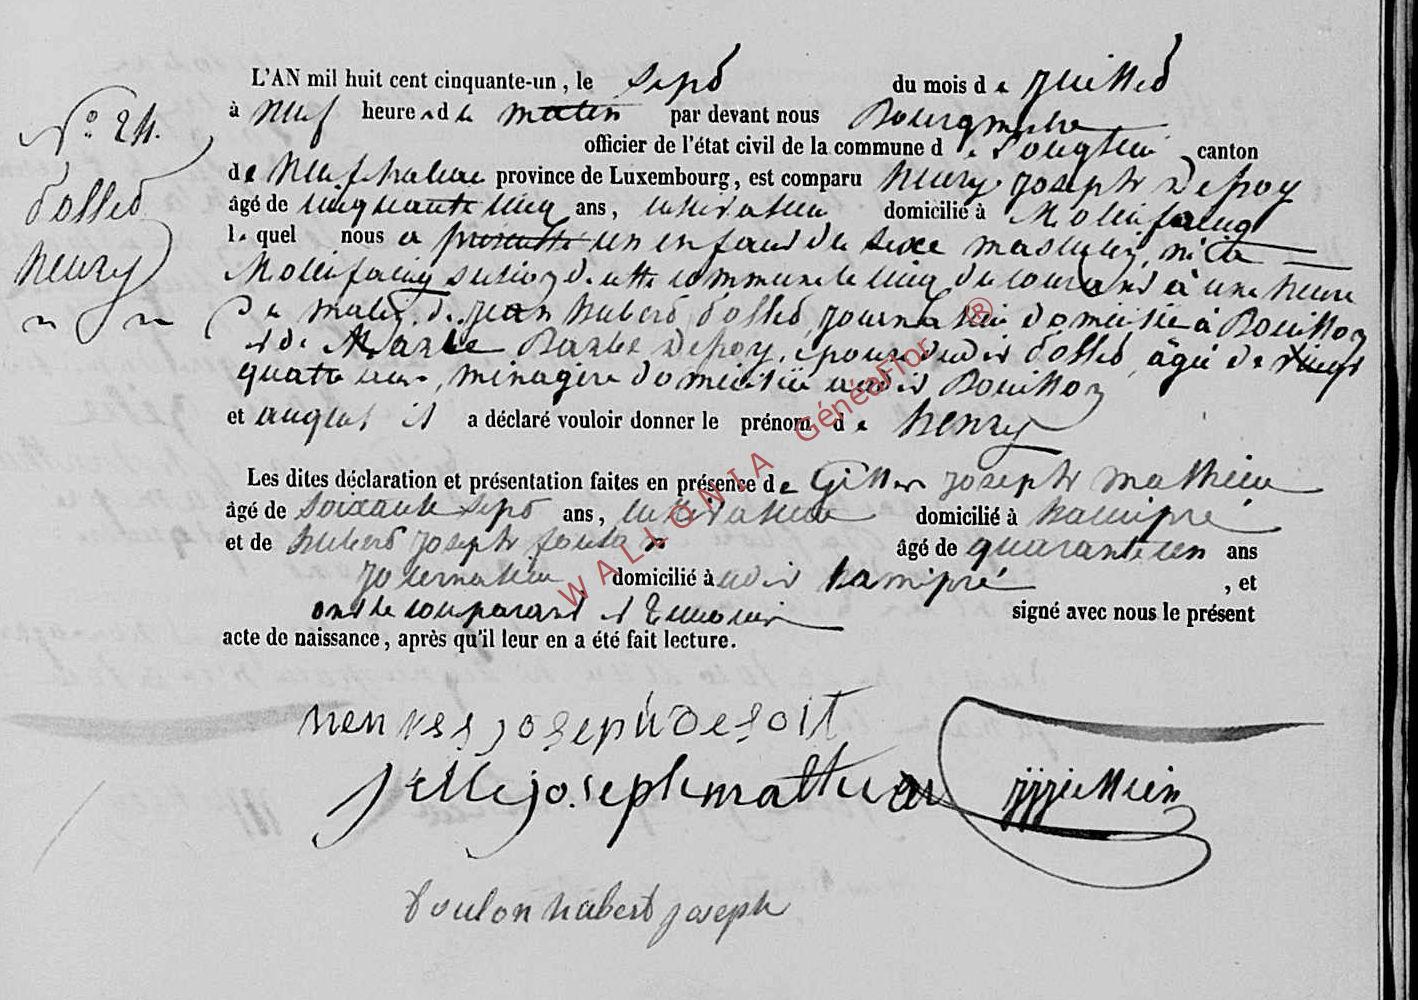 L'AN mil huit cent cinquante-un, le sept du mois de juillet
N° 24.
à neuf heures du matin par devant nous Bourgmestre
officier de l'état civil de la commune de Longlier canton
Dossed
henry
de Neufchateau province de Luxembourg, est comparu henry joseph Defoy
âgé de cinquante cinq ans, cultivateur domicilié à Mollifaing
lequel nous a présenté un enfant du sexe masculin, né à
Mollifaing section de cette commune le cinq du courant à une heure
du matin, de jean hubert Dossed, journalier domicilié à Bouillon
et de Marie Barbe Defoy, épouse dudit Dossed, âgée de vingt
quatre ans, ménagère domiciliée audit Bouillon
et auquel il a déclaré vouloir donner le prénom de henry
Les dites déclaration et présentation faites en présence de Gilles joseph mathieu
âgé de soixante sept ans, cultivateur domicilié à hamipré
et de hubert joseph foulon âgé de quarante un ans
journalier domicilié audit hamipré, et
ont le comparant et témoins signé avec nous le présent
acte de naissance, après qu'il leur en a été fait lecture.
joseph
joseph mathieu
foulon hubert joseph
WALLONIA GénéaFlor ®